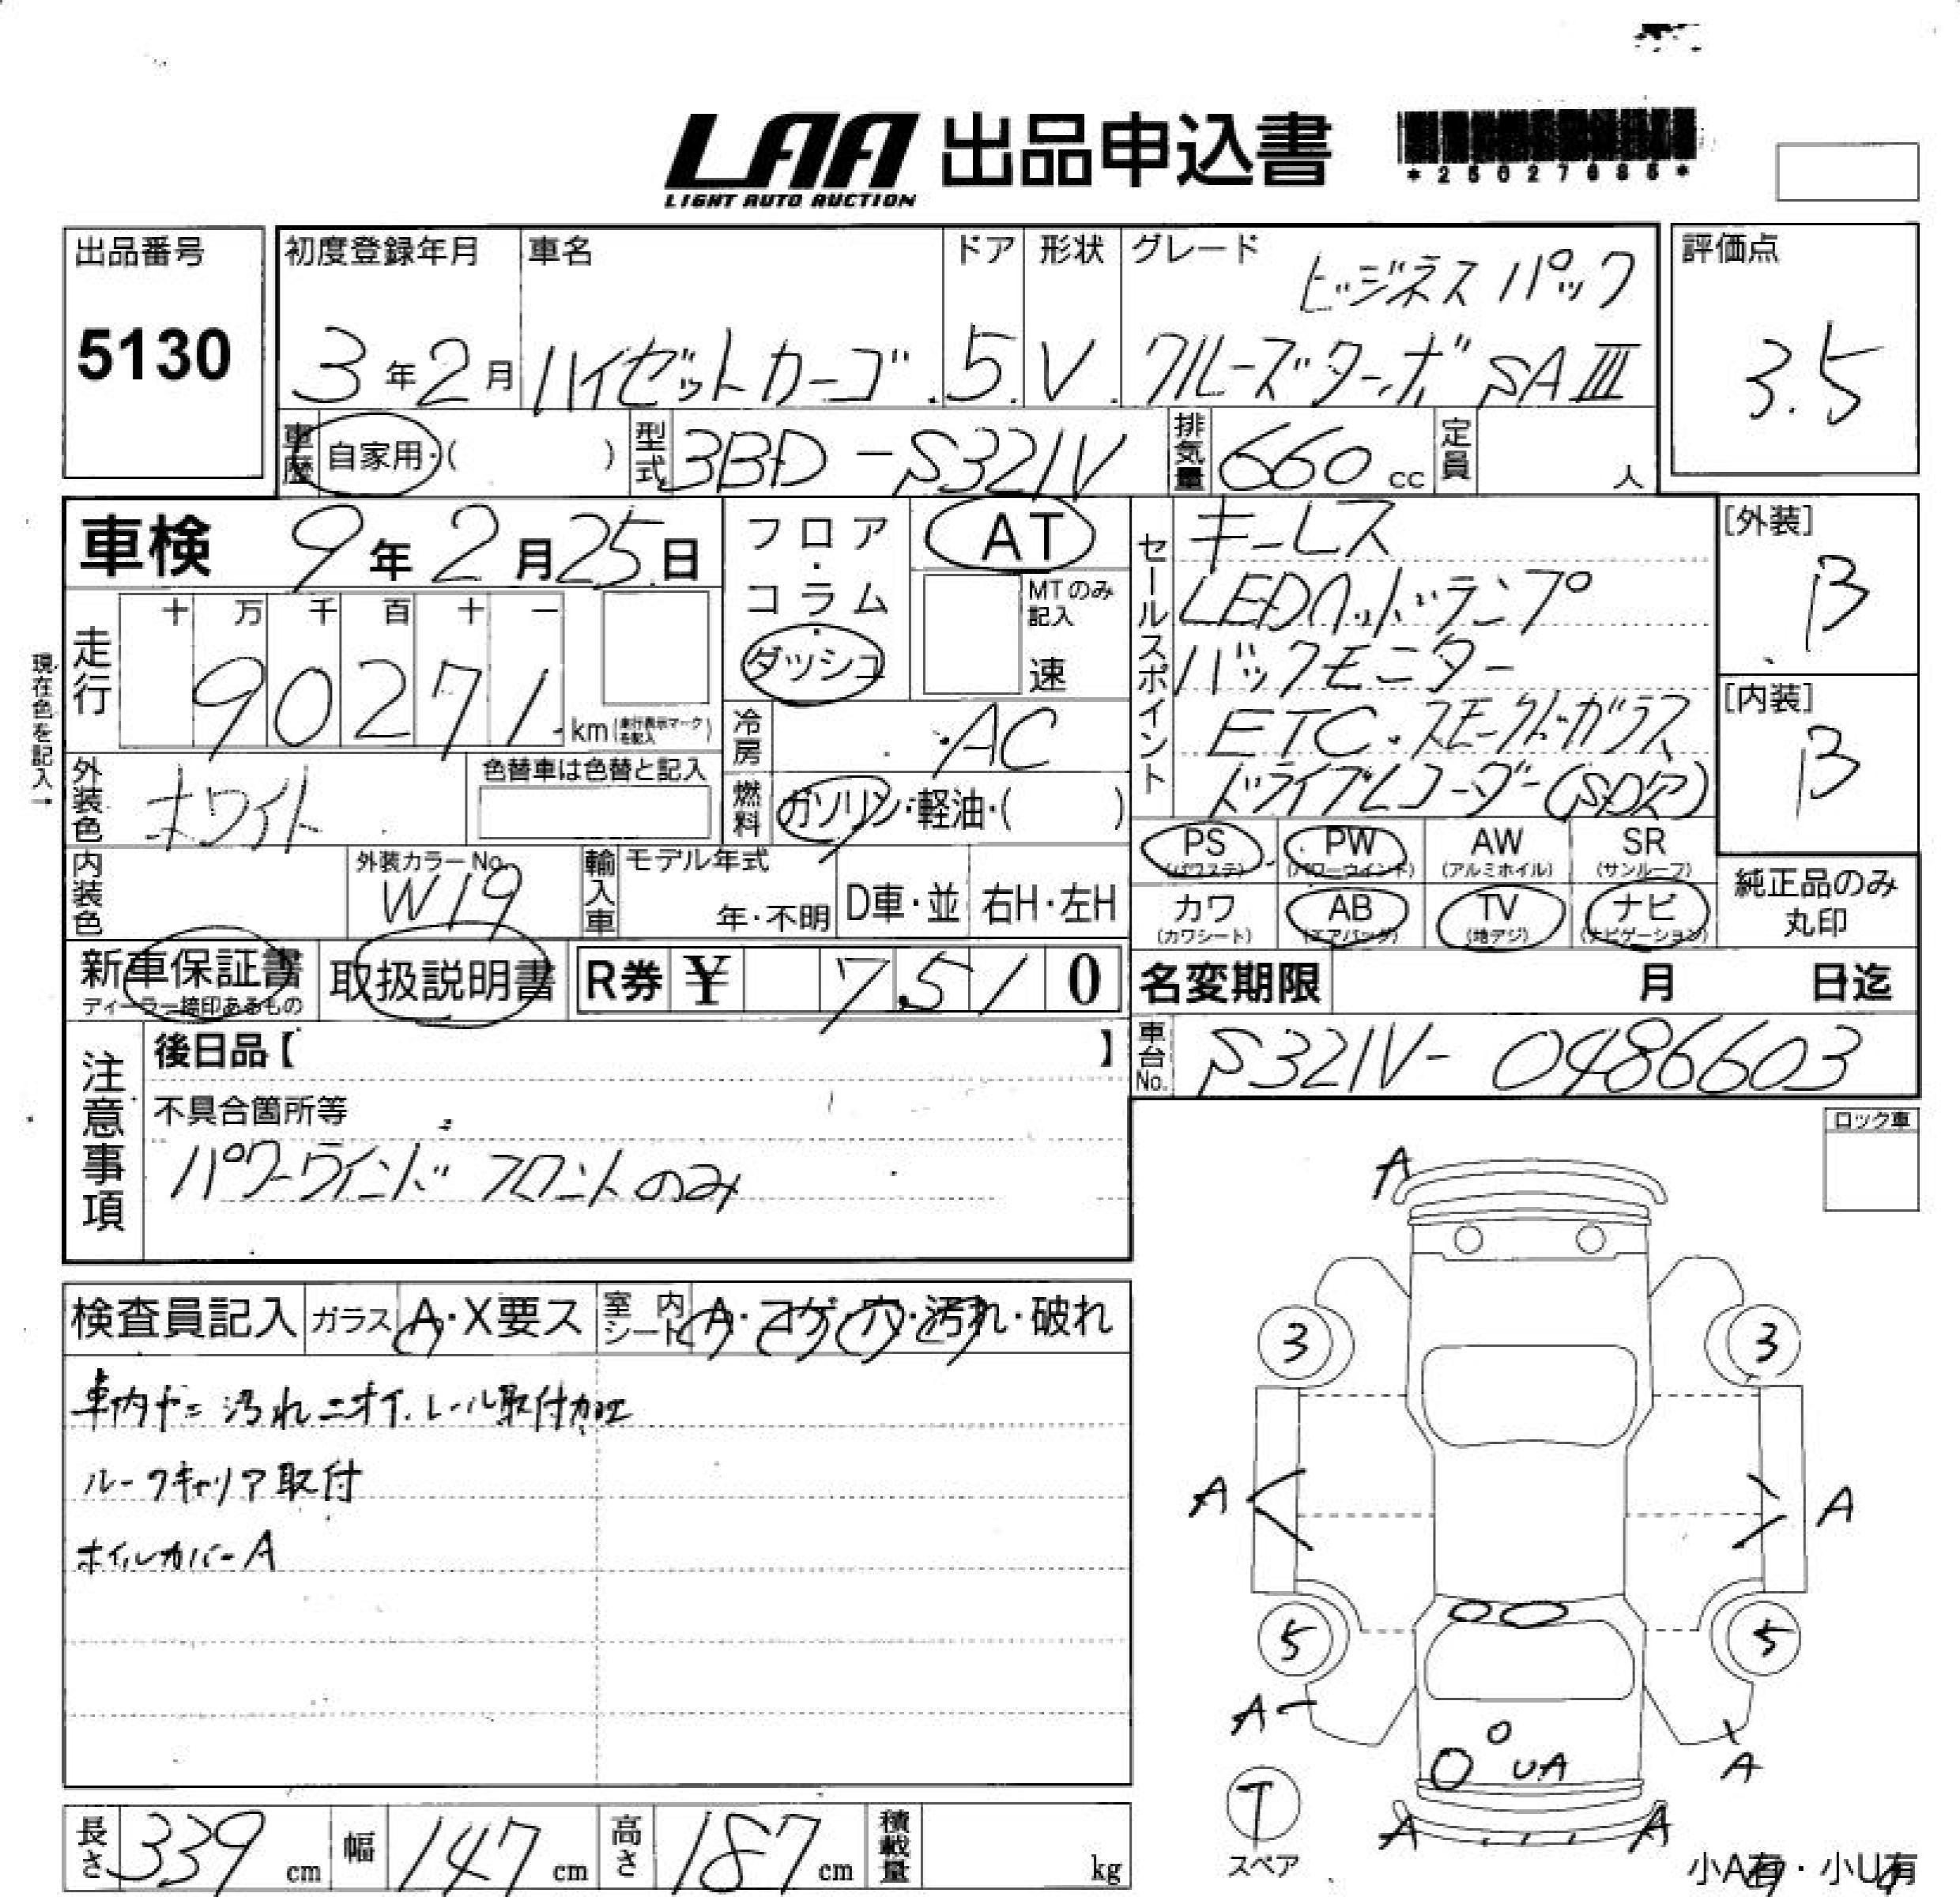 LAA 出品申込書
LIGHT AUTO AUCTION
出品番号
5130
初度登録年月
3年2月
車名
ハイゼットカーゴ
ドア
5
形状
V
グレード
ビジネスパック
クルーズターボ SAⅢ
評価点
3.5
車歴 自家用・( )
型式 3BD-S321V
排気量 660 cc
定員 人
車検 9年2月25日
フロア・コラム・ダッシュ
AT
MTのみ記入
速
セールスポイント
キーレス
LEDヘッドランプ
バックモニター
ETC・スモークドガラス
[外装]
B
[内装]
B
現在色を記入→
走行
十 万 千 百 十 一
90271 km (走行表示マークを記入)
冷房 AC
燃料 ガソリン・軽油・( )
外装色 ホワイト
色替車は色替と記入
内装色
外装カラーNo.
W19
輸入車
モデル年式
年・不明
D車・並
右H・左H
PS (パワステ)
PW (パワーウインド)
AW (アルミホイル)
SR (サンルーフ)
カワ (カワシート)
AB (エアバッグ)
TV (地デジ)
ナビ (ナビゲーション)
純正品のみ
丸印
新車保証書
ディーラー捺印あるもの
取扱説明書
R券 ¥ 7,510
名変期限 月 日迄
車台No. S321V-0486603
注意事項
後日品【 】
不具合箇所等
パワーウインド フロントのみ
ロック車
検査員記入
ガラス A・X要ス
室内シート A・コゲ・穴・汚れ・破れ
車内ヤニ 汚れ ニオイ レール取付加工
ルーフキャリア取付
ホイルカバーA
A
3
3
A
A
5
5
A
UA
A
T
スペア
A
A
小A有・小U有
長さ 339 cm
幅 147 cm
高さ 187 cm
積載量 kg